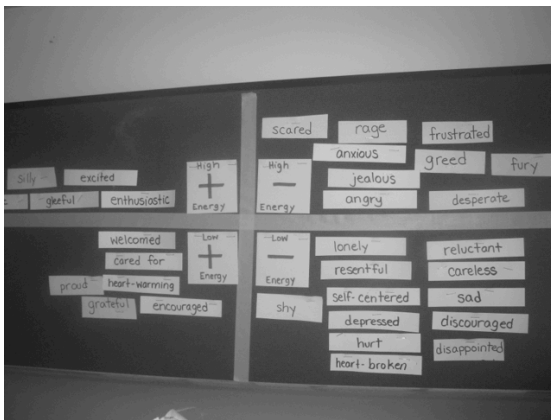 silly
excited
gleeful
enthusiastic
High
+
Energy
scared
rage
frustrated
anxious
greed
fury
jealous
angry
desperate
High
−
Energy
welcomed
cared for
proud
heart-warming
grateful
encouraged
Low
+
Energy
Low
−
Energy
shy
lonely
reluctant
resentful
careless
self-centered
sad
depressed
discouraged
hurt
disappointed
heart-broken